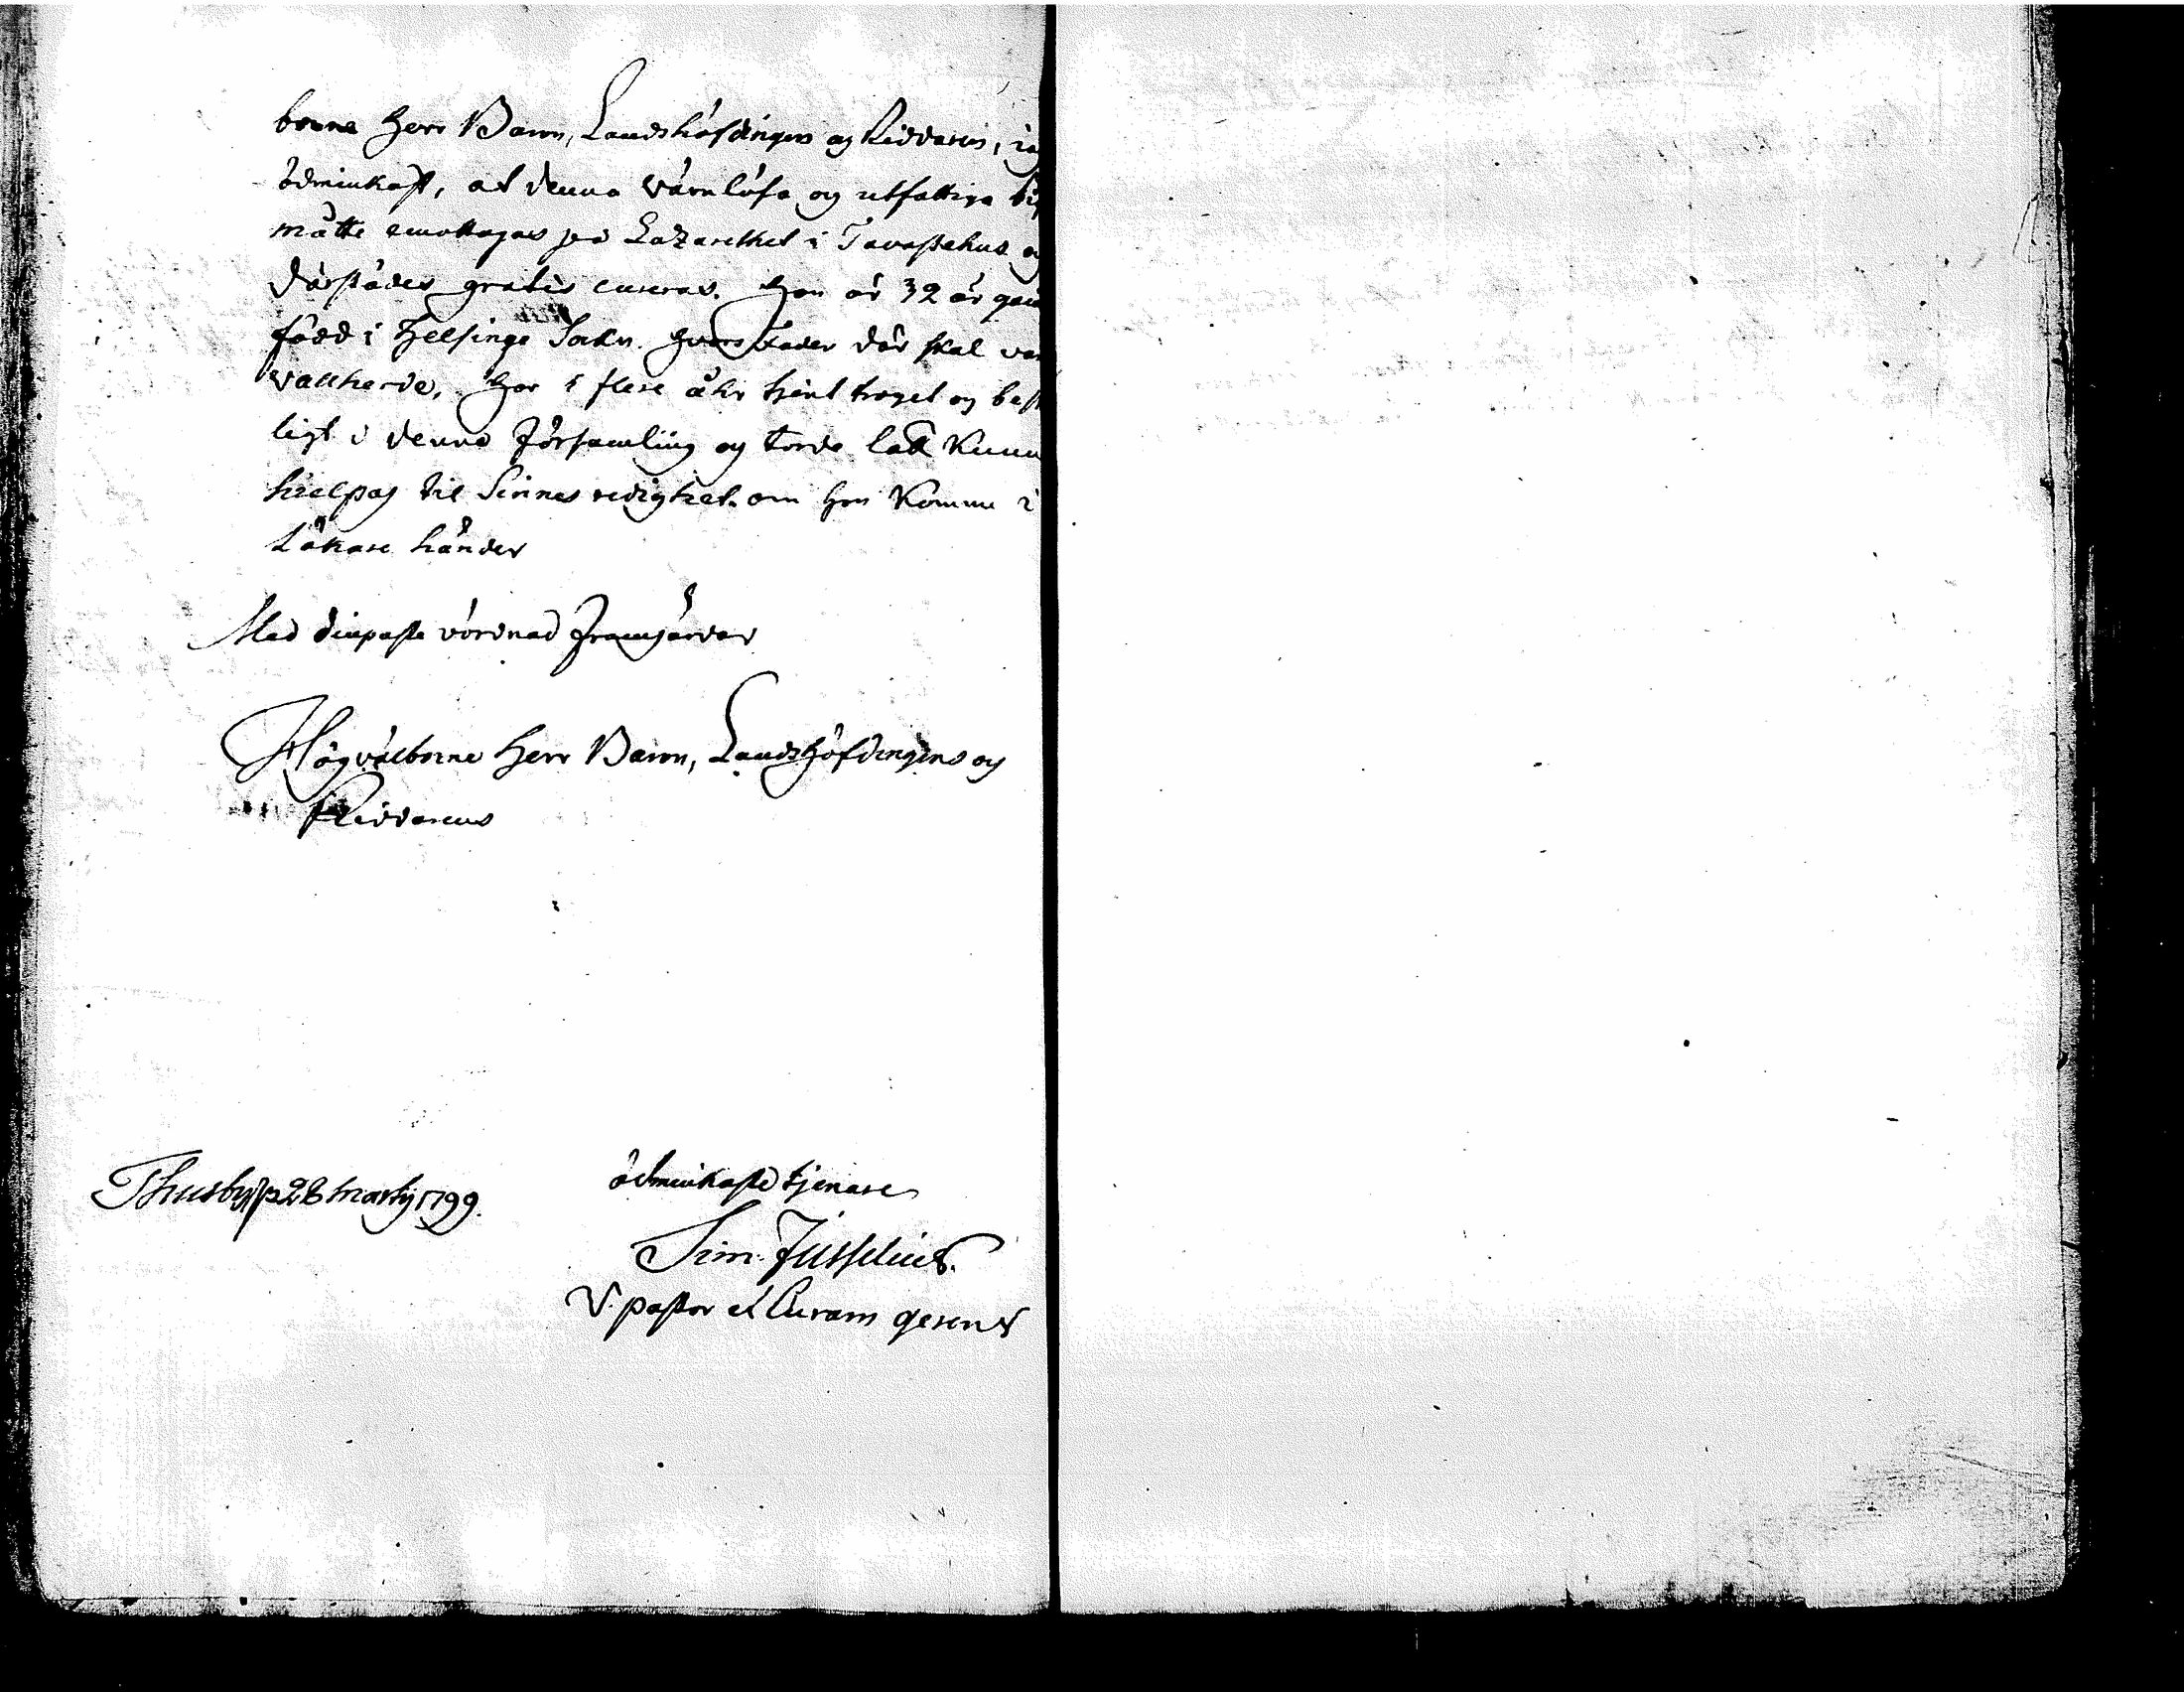 borne Herr Baron, Landshöfdingen og Riddaren, i
ödmiukast, at denna värnlösa og utfattiga
måtte emottagas på Lazarethet i Tavastehus og
därstädes gratis cureras. Hon är 32 år
född i Helsinge Sokn. hvars Fader där skal
vallherde, Har i flere åhr tjent troget og
ligt i denna Församling og torde lätt
hielpas til Sinnes redighet om hon komme i
Läkare händer
Med diupaste vördnad Framhärdar
Högvälborne Herr Baron, Landshöfdingens og
Riddarens
ödmiukaste tjenare
Thusby p 28 Martij 1799.
Sim. Jusselius.
V. pastor et Curam gerens